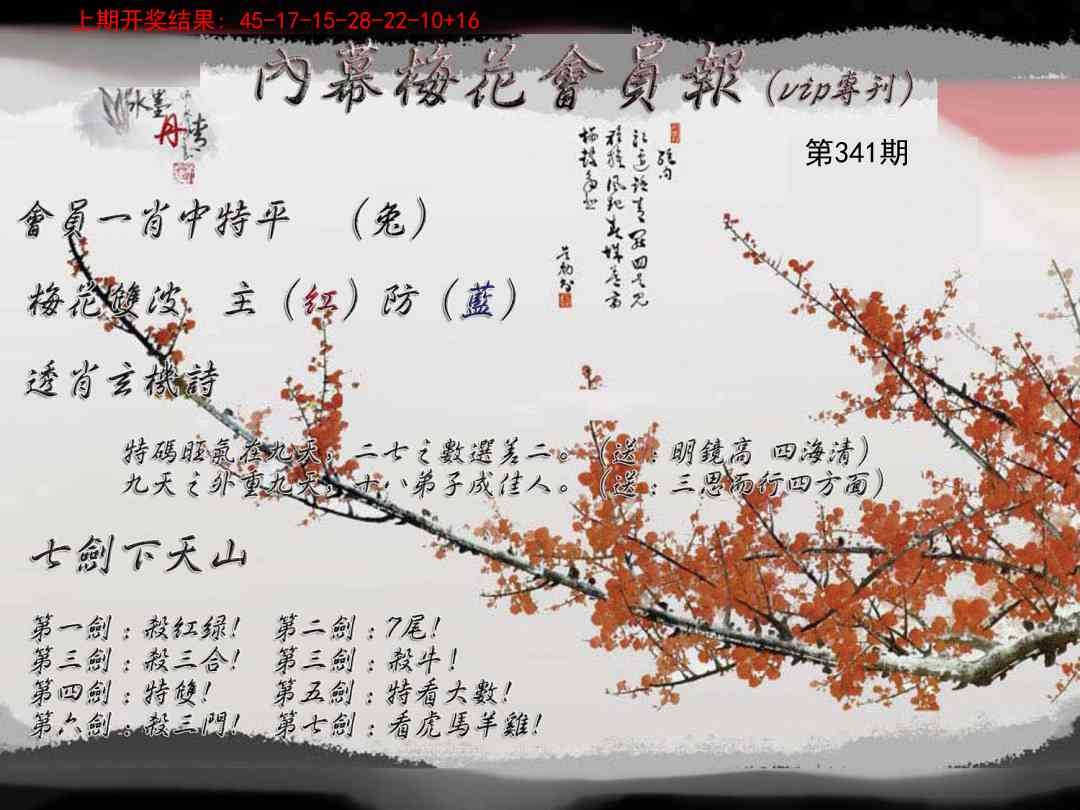 上期开奖结果：45-17-15-28-22-10+16
內幕梅花會員報（vip專刊）
水墨丹青
第341期
會員一肖中特平　（兔）
梅花雙波　主（紅）防（藍）
透肖玄機詩
特碼旺氣在九天，二七之數選差二。（送：明鏡高 四海清）
九天之外重九天，十八弟子成佳人。（送：三思而行四方面）
七劍下天山
第一劍：殺紅绿！　第二劍：7尾！
第三劍：殺三合！　第三劍：殺牛！
第四劍：特雙！　第五劍：特看大數！
第六劍：殺三門！　第七劍：看虎馬羊雞！